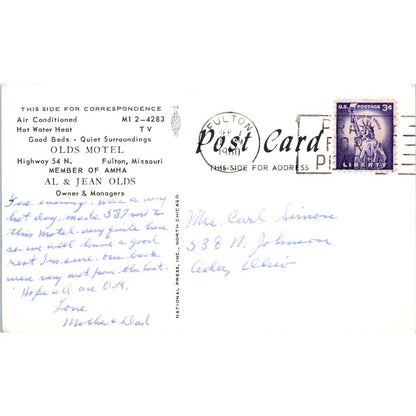 THIS SIDE FOR CORRESPONDENCE
Air Conditioned MI 2-4283
Hot Water Heat TV
Good Beds • Quiet Surroundings
OLDS MOTEL
Highway 54 N. Fulton, Missouri
MEMBER OF AMHA
AL & JEAN OLDS
Owner & Managers
evening. was a very
hot day, made 587 mi to
this Motel. very quite here
so we will have a good
rest I'm sure. our back
were very wet from the heat.
Hope all are O.K.
Love
Mother & Dad
NATIONAL PRESS, INC., NORTH CHICAGO
FULTON
SEP
1960
Post Card
THIS SIDE FOR ADDRESS
PRAY
FOR
PEACE
U.S. POSTAGE 3¢
LIBERTY
Mrs. Carl Simon
538 N. Johnson
Ada, Ohio